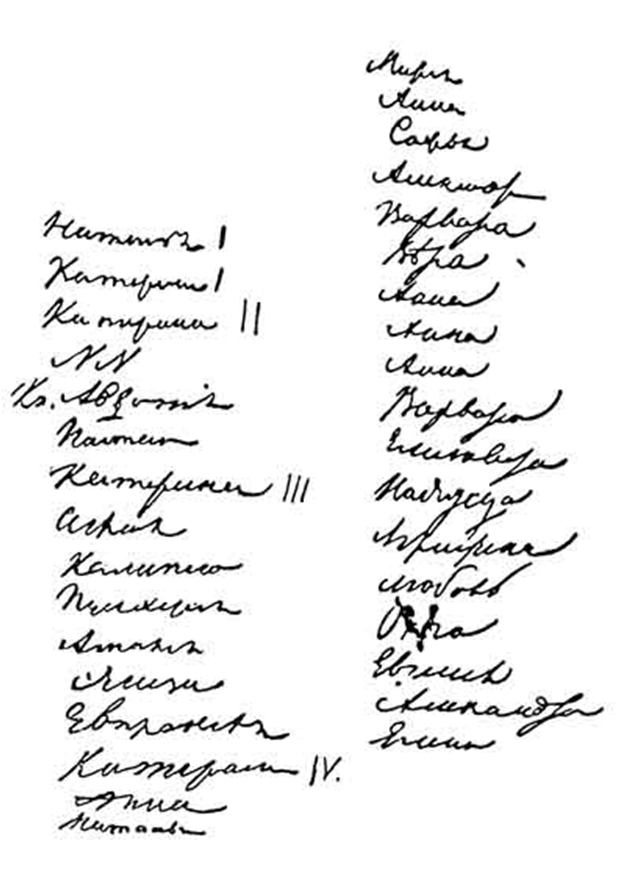 Наталья I
Катерина I
Катерина II
NN
Кн. Авдотія
Настасья
Катерина III
Аглая
Калипсо
Пулхерія
Амалія
Элиза
Евпраксея
Катерина IV.
Анна
Наталья
Мария
Анна
Софья
Александра
Варвара
Вѣра
Анна
Анна
Анна
Варвара
Елизавета
Надежда
Аграфена
Любовь
Ольга
Евгения
Александра
Елена